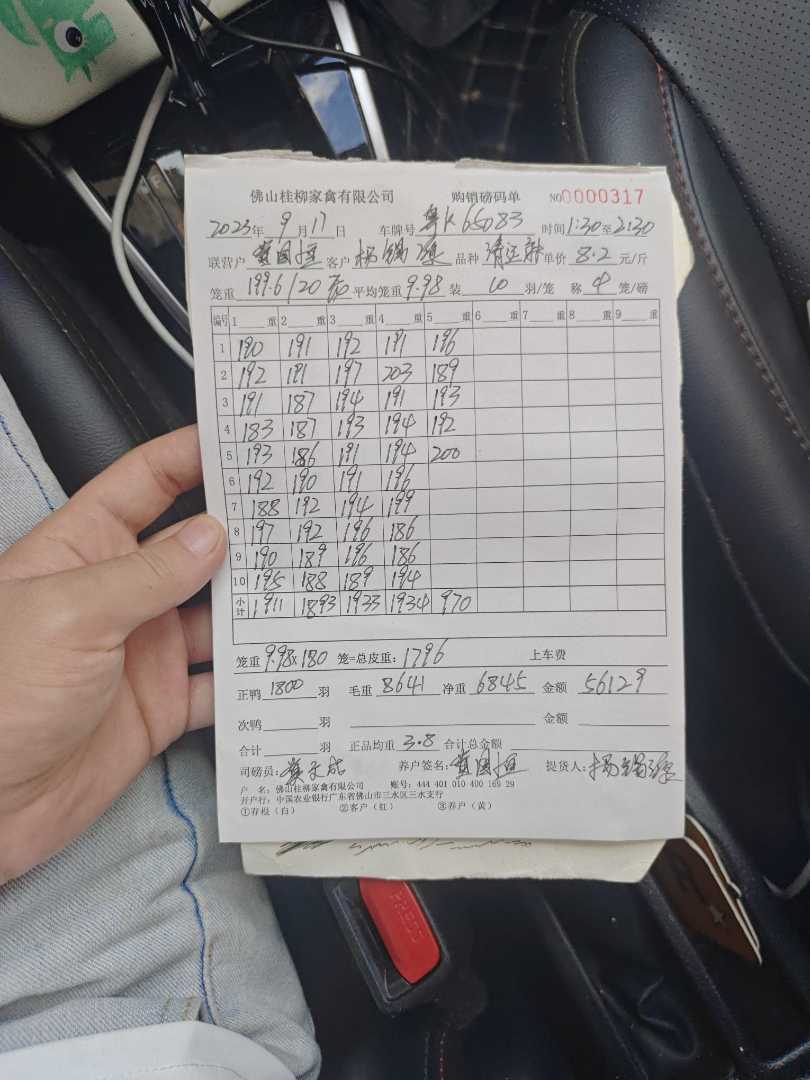 佛山桂柳家禽有限公司 购销磅码单 NO0000317
2023年 9月17日 车牌号 粤K65083 时间1:30至2:30
联营户 客户 品种 单价 8.2 元/斤
笼重 199.6/20 平均笼重 9.98 装 10 羽/笼 称 4 笼/磅
编号 1 重 2 重 3 重 4 重 5 重 6 重 7 重 8 重 9 重
1 190 191 192 191 196
2 192 191 197 203 189
3 191 187 194 191 193
4 183 187 193 194 192
5 193 186 191 194 200
6 192 190 191 196
7 188 192 194 199
8 197 192 196 186
9 190 189 196 186
10 195 188 189 194
小计 1911 1893 1933 1934 970
笼重 9.98×180 笼=总皮重: 1796 上车费
正鸭 1800 羽 毛重 8641 净重 6845 金额 56129
次鸭 羽 金额
合计 羽 正品均重 3.8 合计总金额
司磅员: 养户签名: 提货人:
户 名: 佛山桂柳家禽有限公司 账号: 444 401 010 400 169 29
开户行: 中国农业银行广东省佛山市三水区三水支行
①存根(白) ②客户(红) ③养户(黄)
PRESS